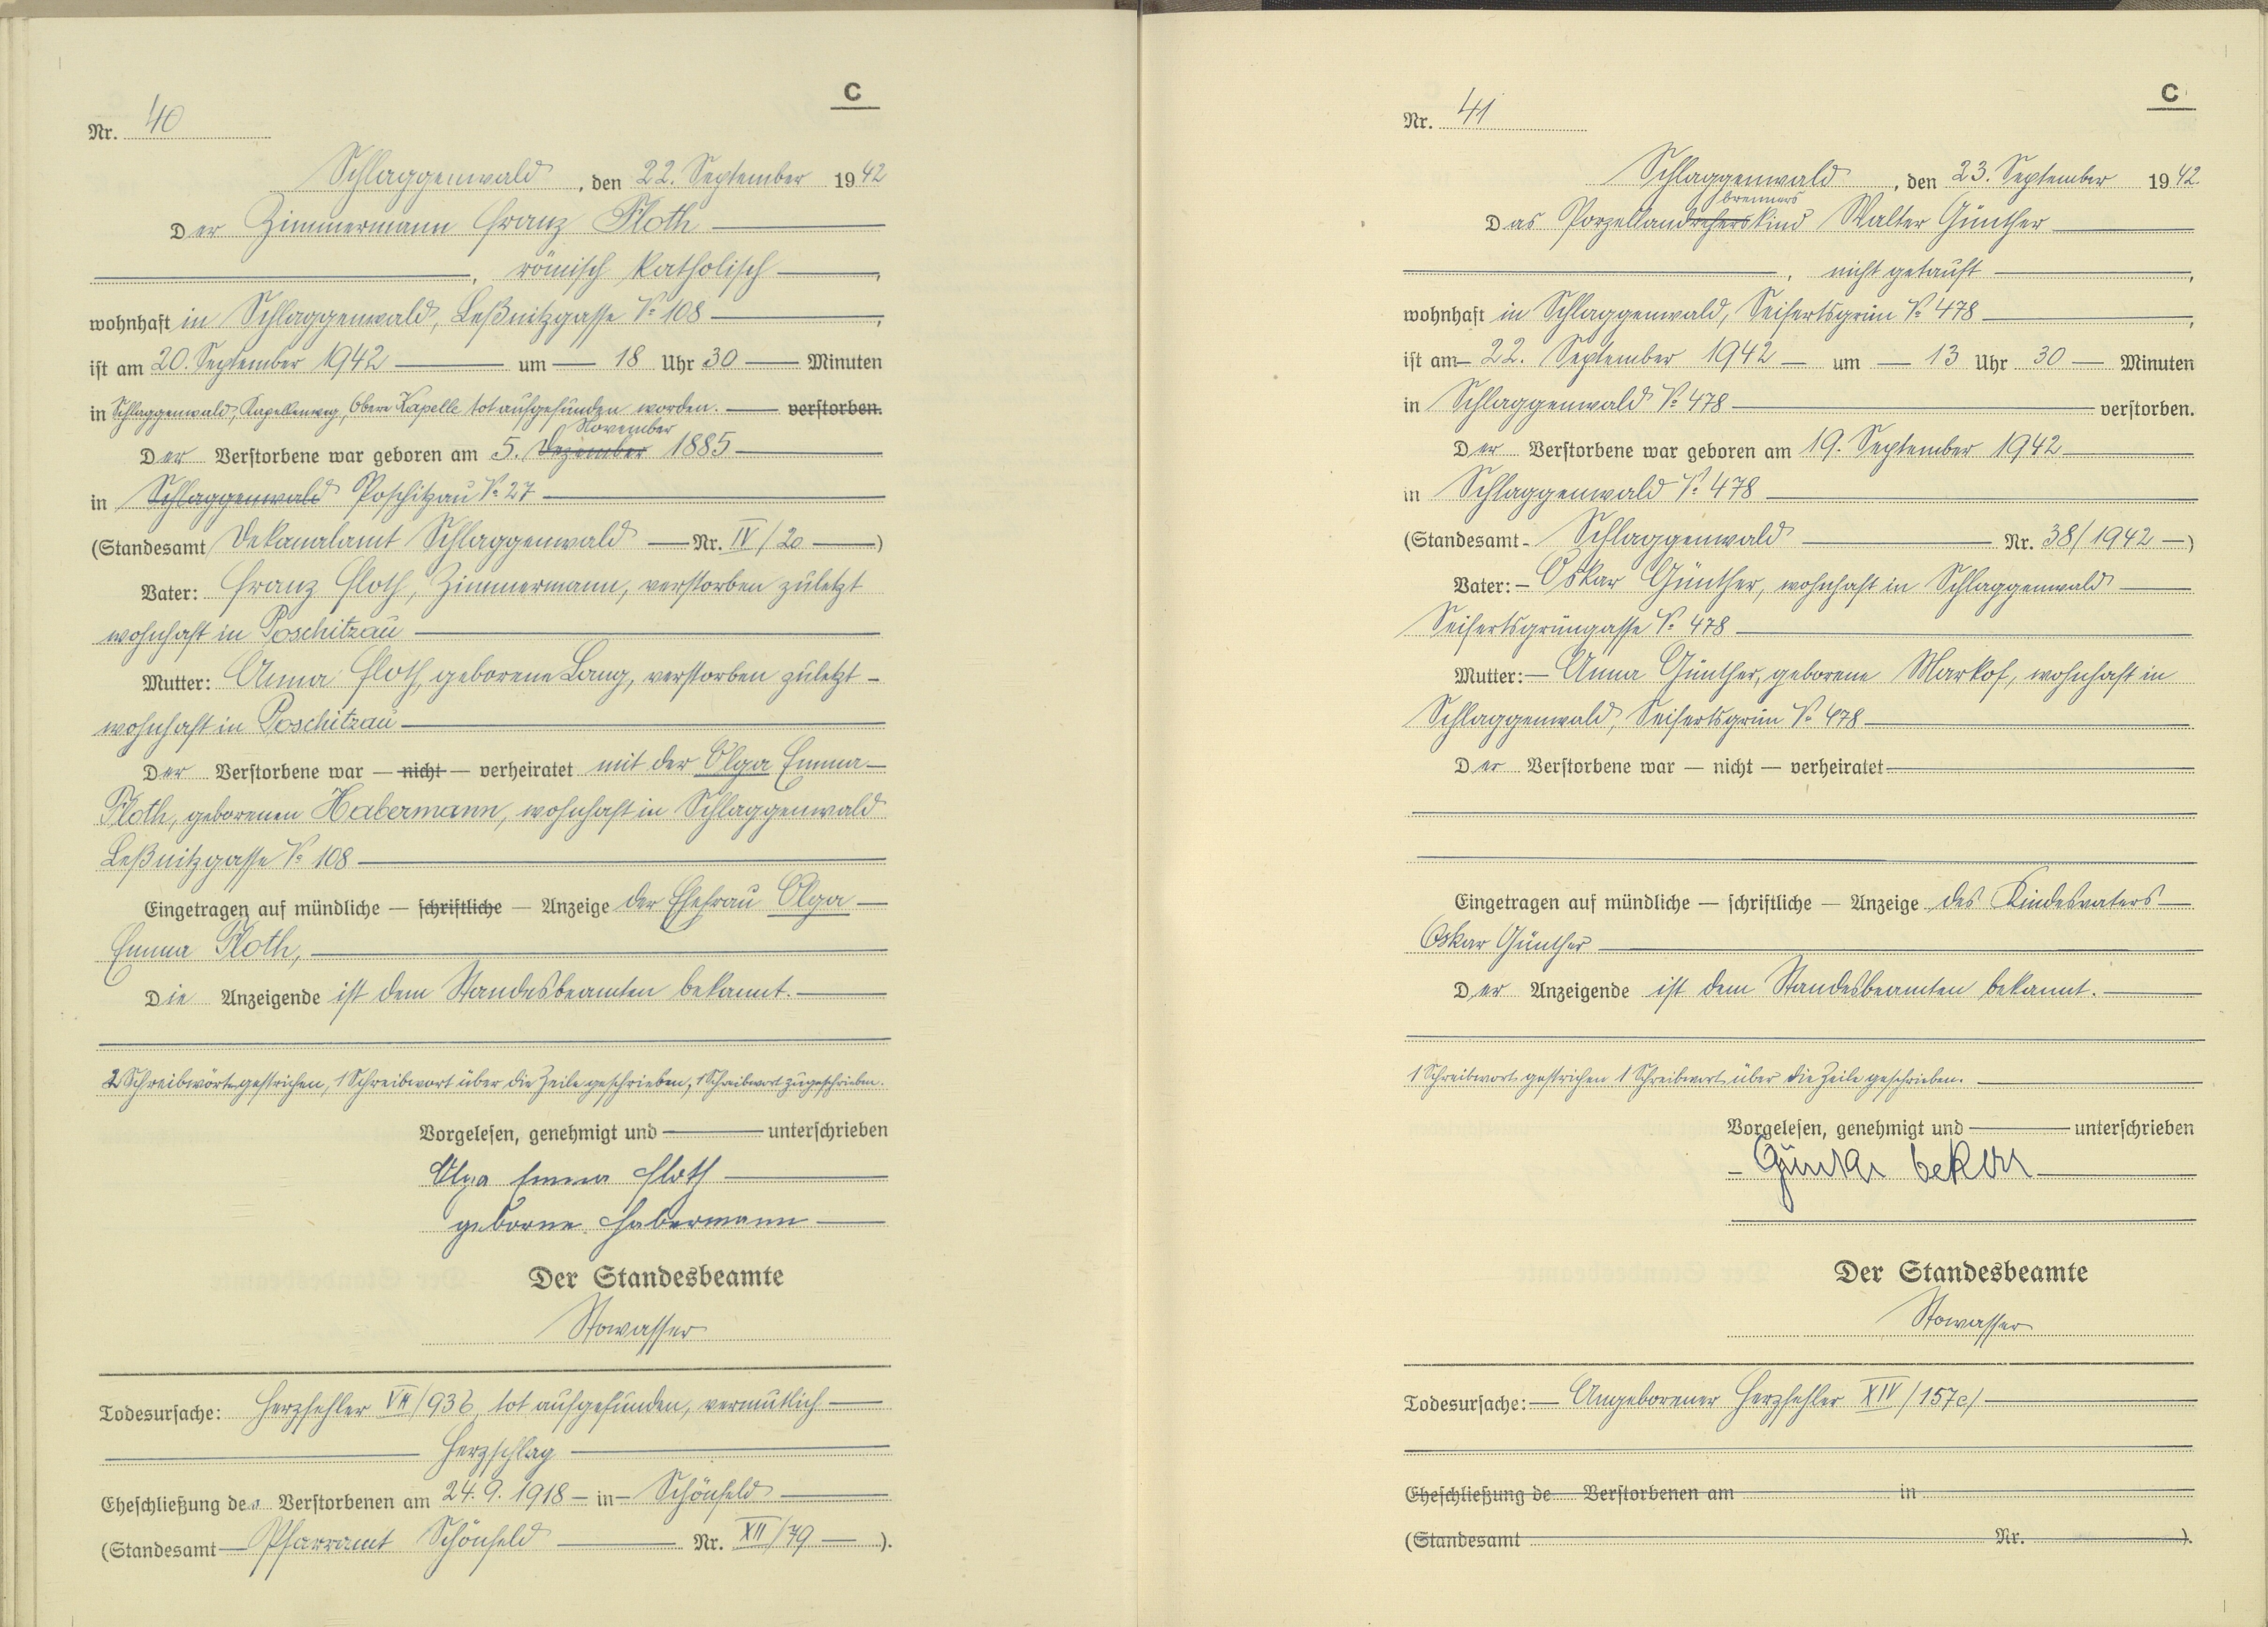 C
Nr. 40
Schlaggenwald, den 22. September 1942
Der Zimmermann Franz Floth
, römisch katholisch,
wohnhaft in Schlaggenwald, Leßnitzgasse No 108,
ist am 20. September 1942 um 18 Uhr 30 Minuten
in Schlaggenwald, Kapellenweg, Obere Kapelle tot aufgefunden worden. verstorben.
November
Der Verstorbene war geboren am 5. Dezember 1885
in Schlaggenwald Poschitzau No 27
(Standesamt Dekanalamt Schlaggenwald Nr. IV/20)
Vater: Franz Floth, Zimmermann, verstorben zuletzt
wohnhaft in Poschitzau
Mutter: Anna Floth, geborene Lang, verstorben zuletzt
wohnhaft in Poschitzau
Der Verstorbene war — nicht — verheiratet mit der Olga Emma
Floth, geborenen Habermann, wohnhaft in Schlaggenwald
Leßnitzgasse No 108
Eingetragen auf mündliche — schriftliche — Anzeige der Ehefrau Olga
Emma Floth,
Die Anzeigende ist dem Standesbeamten bekannt.
2 Schreibworte gestrichen, 1 Schreibwort über die Zeile geschrieben, 1 Schreibwort zugeschrieben.
Vorgelesen, genehmigt und unterschrieben
Olga Emma Floth
geborne Habermann
Der Standesbeamte
Stowasser
Todesursache: Herzfehler VII/93b, tot aufgefunden, vermutlich
Herzschlag
Eheschließung des Verstorbenen am 24.9.1918 in Schönfeld
(Standesamt Pfarramt Schönfeld Nr. XII/79).
C
Nr. 41
Schlaggenwald, den 23. September 1942
brenners
Das Porzellandreherskind Walter Günther
, nicht getauft,
wohnhaft in Schlaggenwald, Seifertsgrün No 478,
ist am 22. September 1942 um 13 Uhr 30 Minuten
in Schlaggenwald No 478 verstorben.
Der Verstorbene war geboren am 19. September 1942
in Schlaggenwald No 478
(Standesamt Schlaggenwald Nr. 38/1942)
Vater: Oskar Günther, wohnhaft in Schlaggenwald
Seifertsgrüngasse No 478
Mutter: Anna Günther, geborene Markof, wohnhaft in
Schlaggenwald, Seifertsgrün No 478
Der Verstorbene war — nicht — verheiratet
Eingetragen auf mündliche — schriftliche — Anzeige des Kindesvaters
Oskar Günther
Der Anzeigende ist dem Standesbeamten bekannt.
1 Schreibwort gestrichen 1 Schreibwort über die Zeile geschrieben.
Vorgelesen, genehmigt und unterschrieben
Der Standesbeamte
Stowasser
Todesursache: Angeborener Herzfehler XIV/157c/
Eheschließung de Verstorbenen am in
(Standesamt Nr. ).